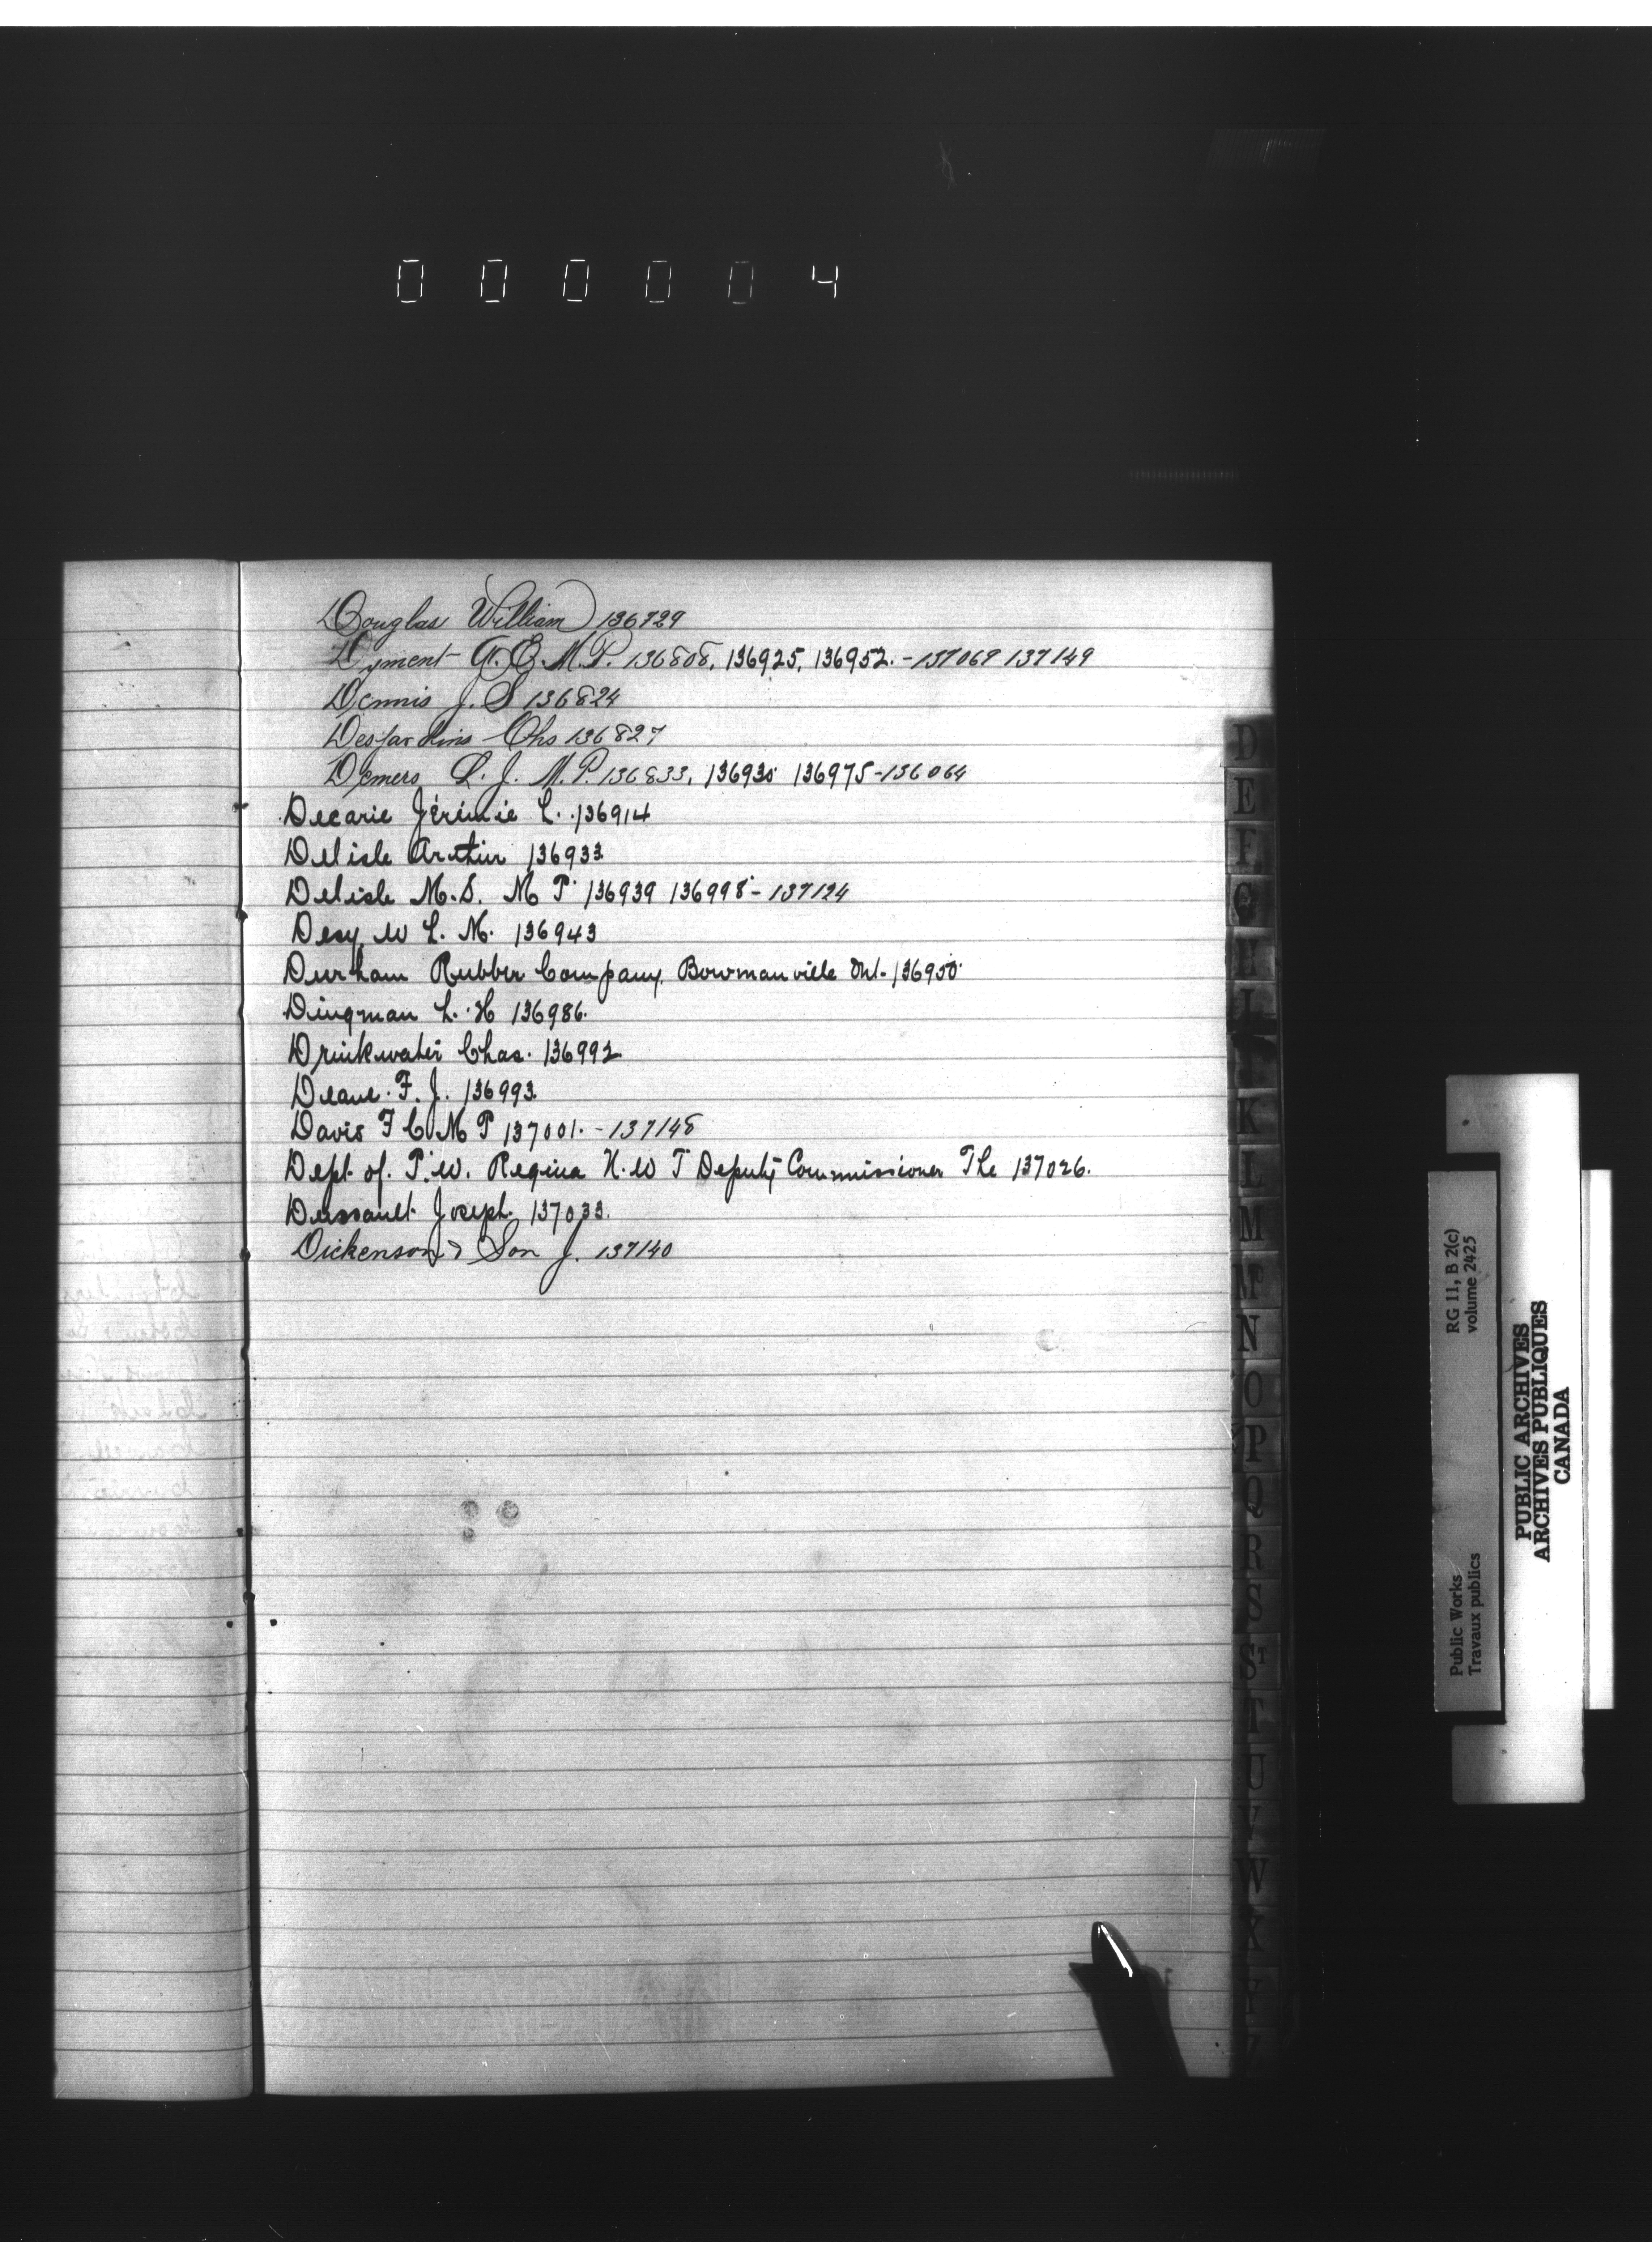 0 0 0 0 0 4
Douglas William 136729
Dyment A. E. M.P. 136808, 136925, 136952. - 137069 137149
Dennis J. S 136824
Desjardins Chs 136827
Demers L. J. M.P. 136833, 136930 136975 - 136064
Decarie Jérémie L. 136914
Delisle Arthur 136933
Delisle M.S. M P 136939 136998 - 137124
Desy W L. M. 136943
Durham Rubber Company, Bowmanville Ont. 136950
Dingman L. H 136986.
Drinkwater Chas. 136992
Deane F. J. 136993.
Davis F C M P 137001. - 137148
Dept of. P.W. Regina N.W T Deputy Commissioner The 137026.
Dussault Joseph. 137033.
Dickenson & Son J. 137140
D
E
F
G
H
I
K
L
M
Mc
N
O
P
Q
R
S
St
T
U
V
W
X
Y
Z
Public Works
Travaux publics
RG 11, B 2(c)
volume 2425
PUBLIC ARCHIVES
ARCHIVES PUBLIQUES
CANADA